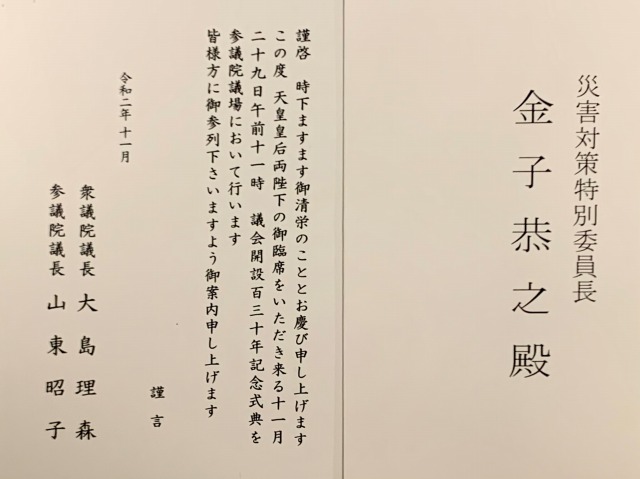 災害対策特別委員長
金子恭之殿
謹啓　時下ますます御清栄のこととお慶び申し上げます
この度　天皇皇后両陛下の御臨席をいただき来る十一月
二十九日午前十一時　議会開設百三十年記念式典を
参議院議場において行います
皆様方に御参列下さいますよう御案内申し上げます
謹言
令和二年十一月
衆議院議長　大島理森
参議院議長　山東昭子